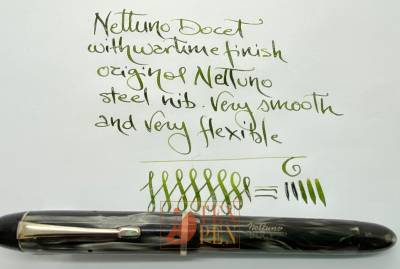 Nettuno Docet
with wartime finish
original Nettuno
steel nib. Very smooth
and very flexible
Nettuno
PEN